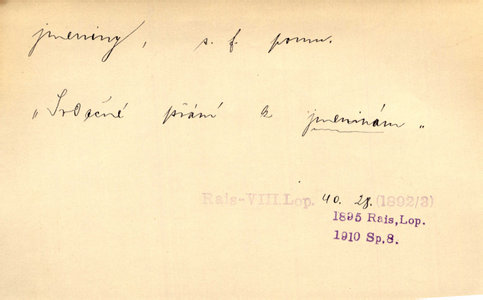 jmeniny, s. f. pomn.
„Srdečné přání k jmeninám„
Rais-VIII.Lop. 40. 28. (1892/3)
1895 Rais, Lop.
1910 Sp.8.